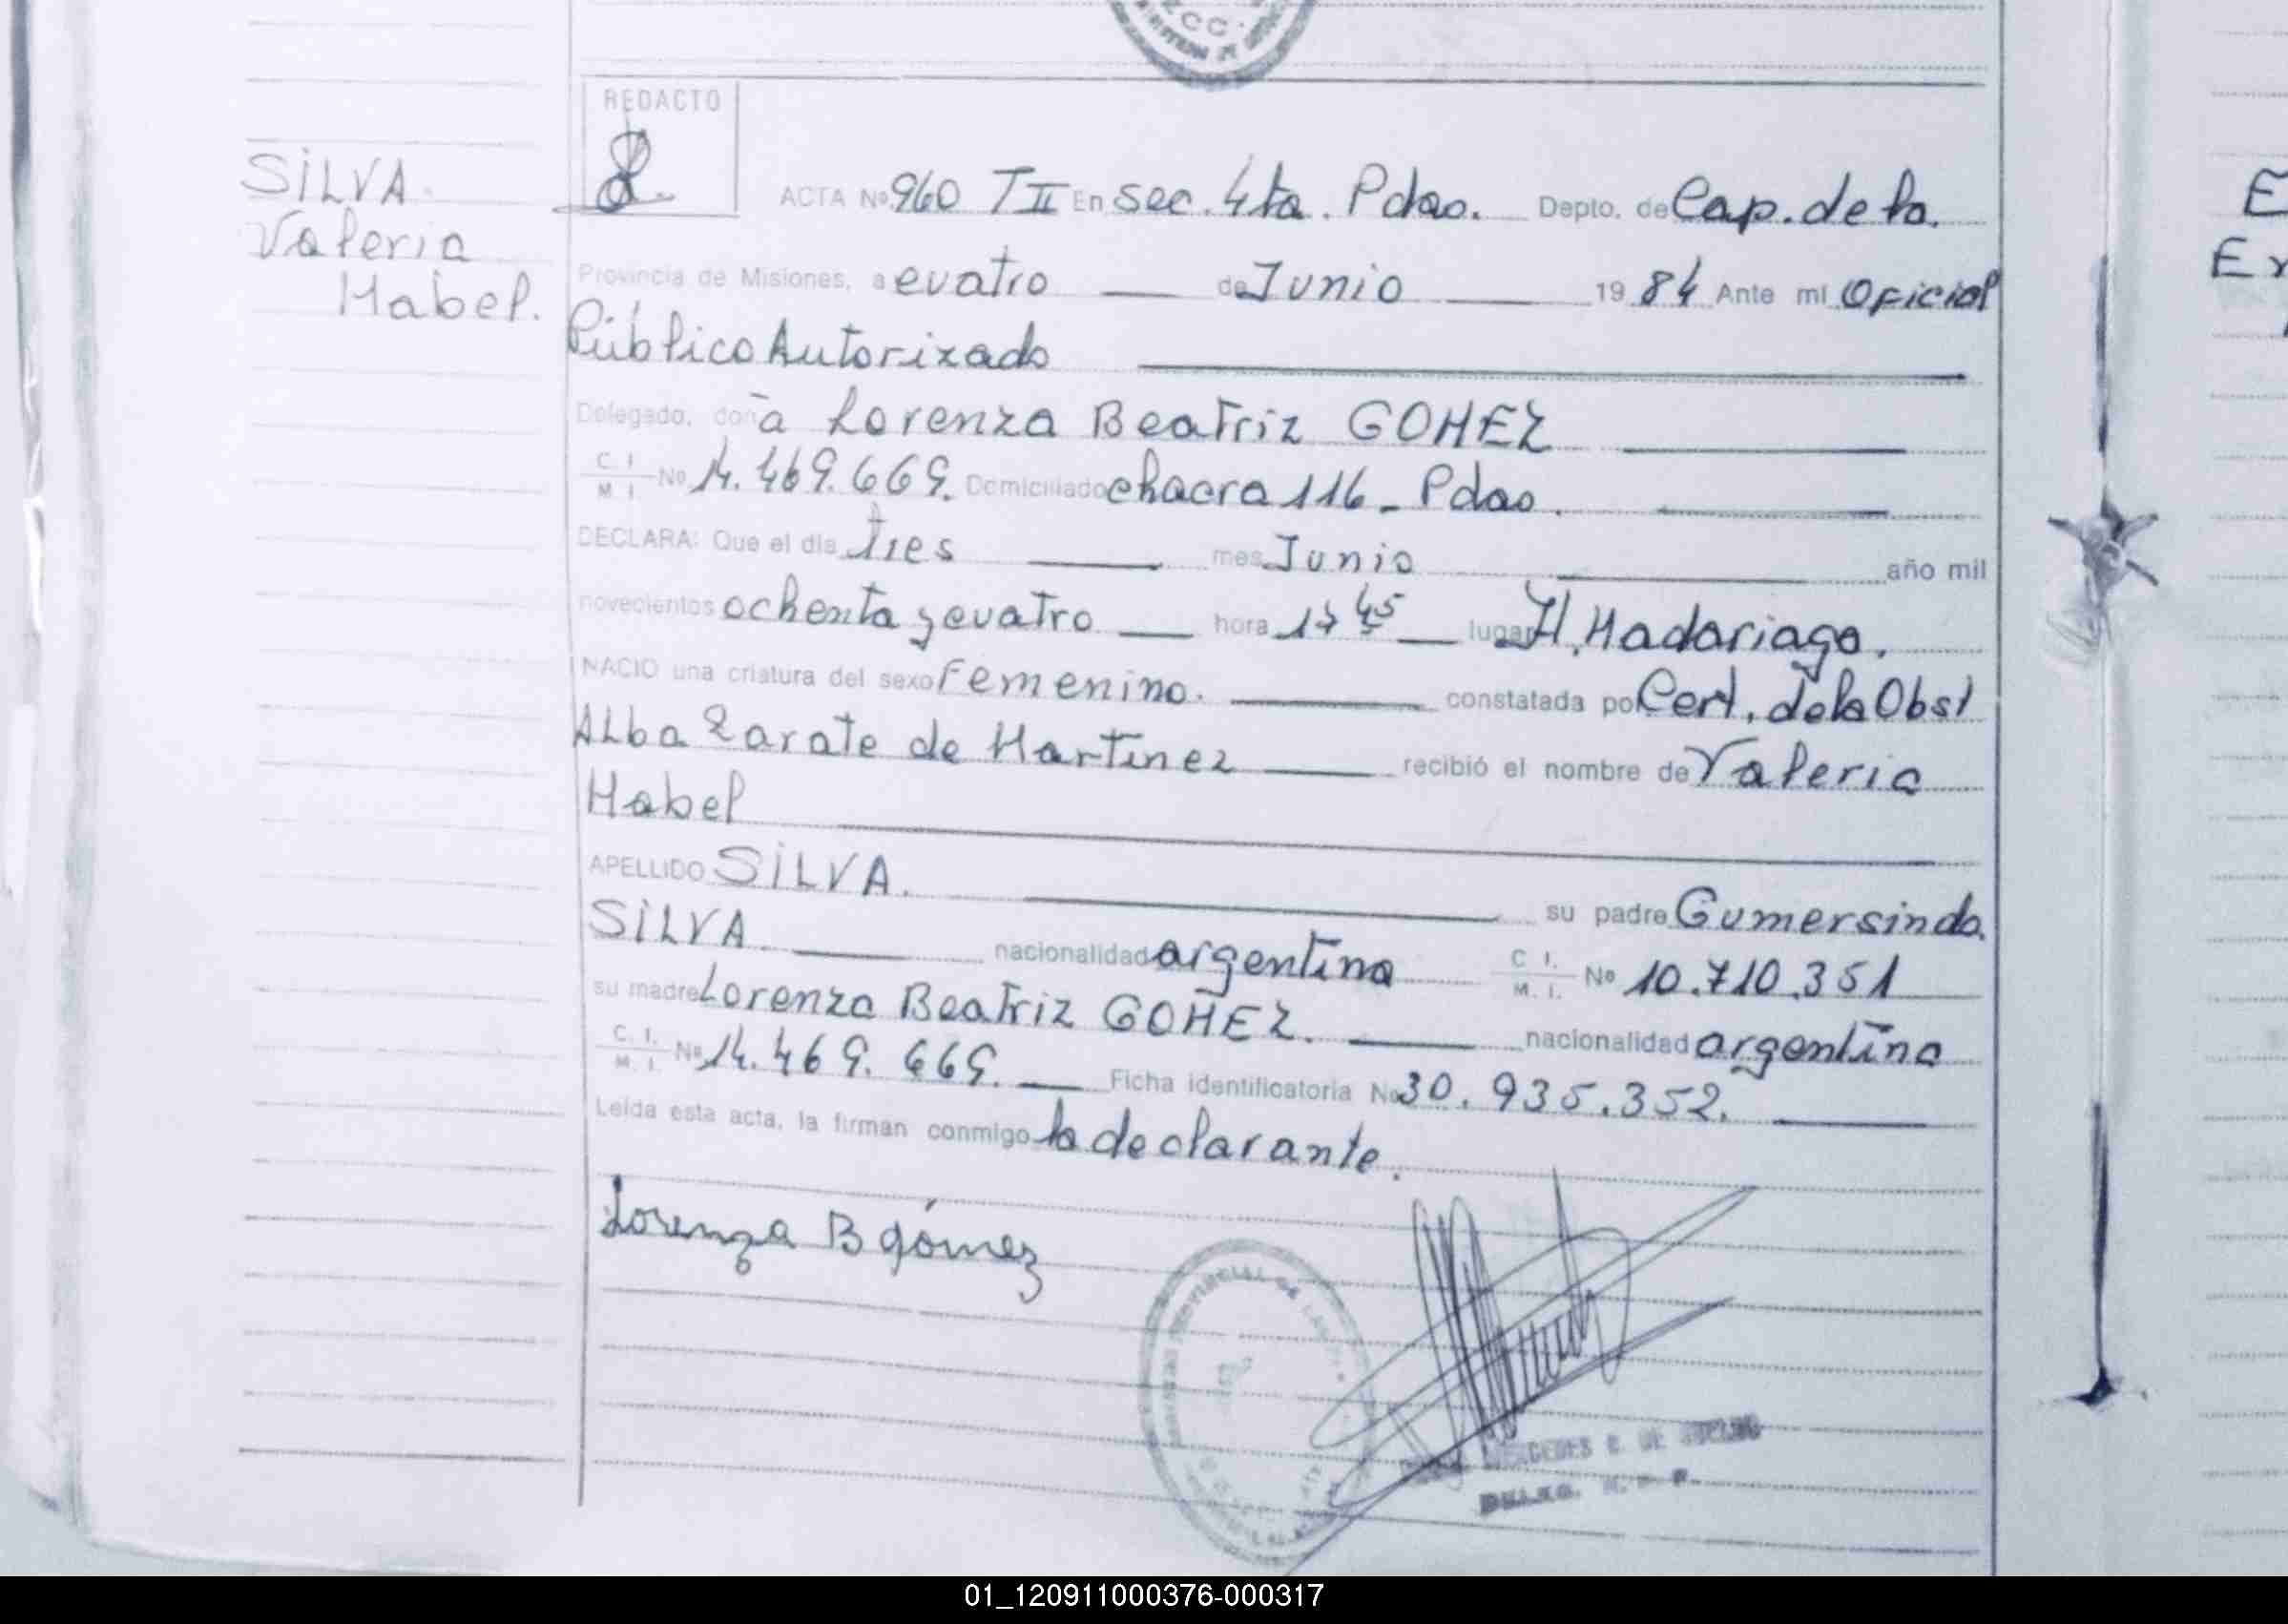 C C
REDACTO
SILVA.
Valeria
Mabel.
ACTA Nº 960 TII En sec. 4ta. Pdas. Depto. de Cap. de la.
Provincia de Misiones, a cuatro de Junio 19 84 Ante mi Oficial
Público Autorizado
Delegado, doña Lorenza Beatriz GOMEZ
C. I. M. I. Nº 14.469.669. Domiciliado chacra 116 - Pdas.
DECLARA: Que el día tres mes Junio año mil
novecientos ochenta y cuatro hora 17 45 lugar H. Madariaga.
NACIO una criatura del sexo Femenino. constatada por Cert. de la Obst
Alba Zarate de Martinez recibió el nombre de Valeria
Mabel
APELLIDO SILVA. su padre Gumersindo.
SILVA nacionalidad argentina C. I. M. I. Nº 10.710.351
su madre Lorenza Beatriz GOMEZ. nacionalidad argentina
C. I. M. I. Nº 14.469.669. Ficha identificatoria Nº 30.935.352.
Leída esta acta, la firman conmigo la declarante.
Lorenza B Gómez
MERCEDES DE
01_120911000376-000317